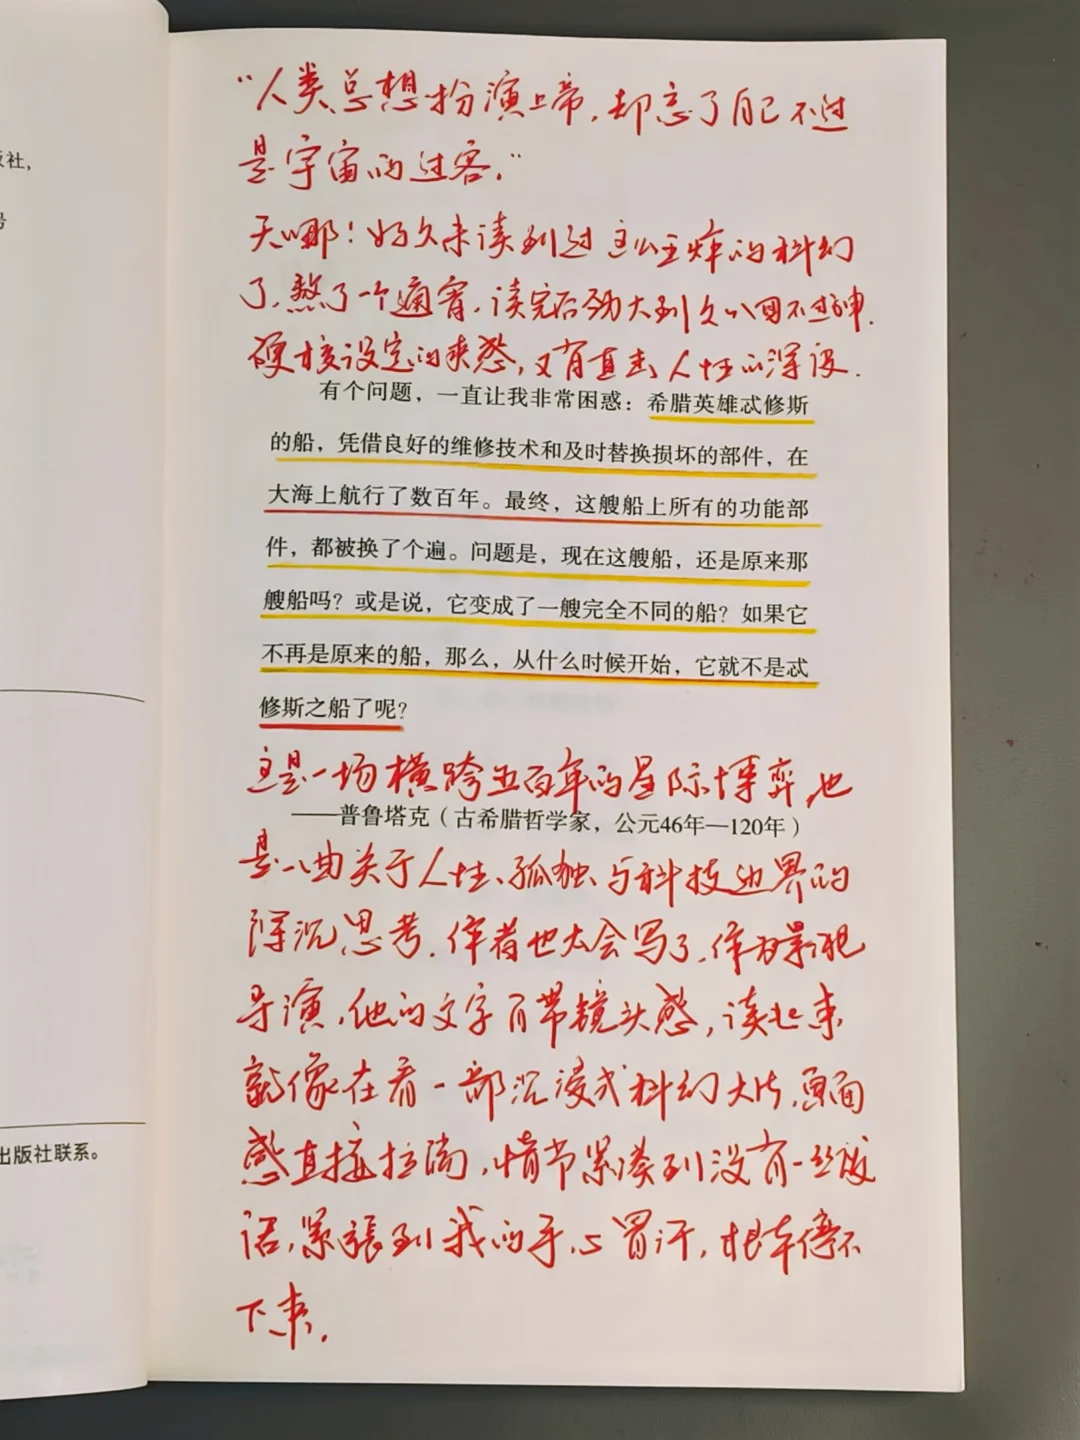 版社，
号
出版社联系。
“人类总想扮演上帝，却忘了自己不过
是宇宙的过客。”
天哪！好久未读到过这么王炸的科幻
了，熬了一个通宵，读完后劲大到久久回不过神．
硬核设定的来感，又有直击人性的深度．
有个问题，一直让我非常困惑：希腊英雄忒修斯
的船，凭借良好的维修技术和及时替换损坏的部件，在
大海上航行了数百年。最终，这艘船上所有的功能部
件，都被换了个遍。问题是，现在这艘船，还是原来那
艘船吗？或是说，它变成了一艘完全不同的船？如果它
不再是原来的船，那么，从什么时候开始，它就不是忒
修斯之船了呢？
这是一场横跨五百年的星际博弈，也
——普鲁塔克（古希腊哲学家，公元46年—120年）
是一曲关于人性、孤独、与科技边界的
深沉思考．作者也太会写了，作为影视
导演，他的文字自带镜头感，读起来
就像在看一部沉浸式科幻大片，画面
感直接拉满，情节紧凑到没有一丝废
话，紧張到我的手心冒汗，根本停不
下来．